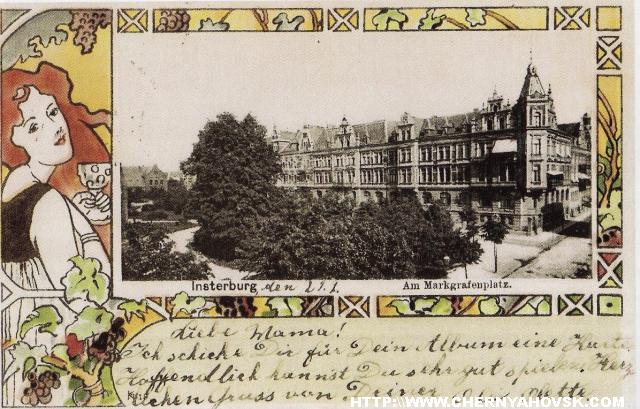 Insterburg den 29.1. Am Markgrafenplatz.
Liebe Mama!
Ich schicke Dir für Dein Album eine Karte
Hoffendlich kannst Du sehr gut spielen. Herz
lichen Gruss von Deiner
HTTP://WWW.CHERNYAHOVSK.COM